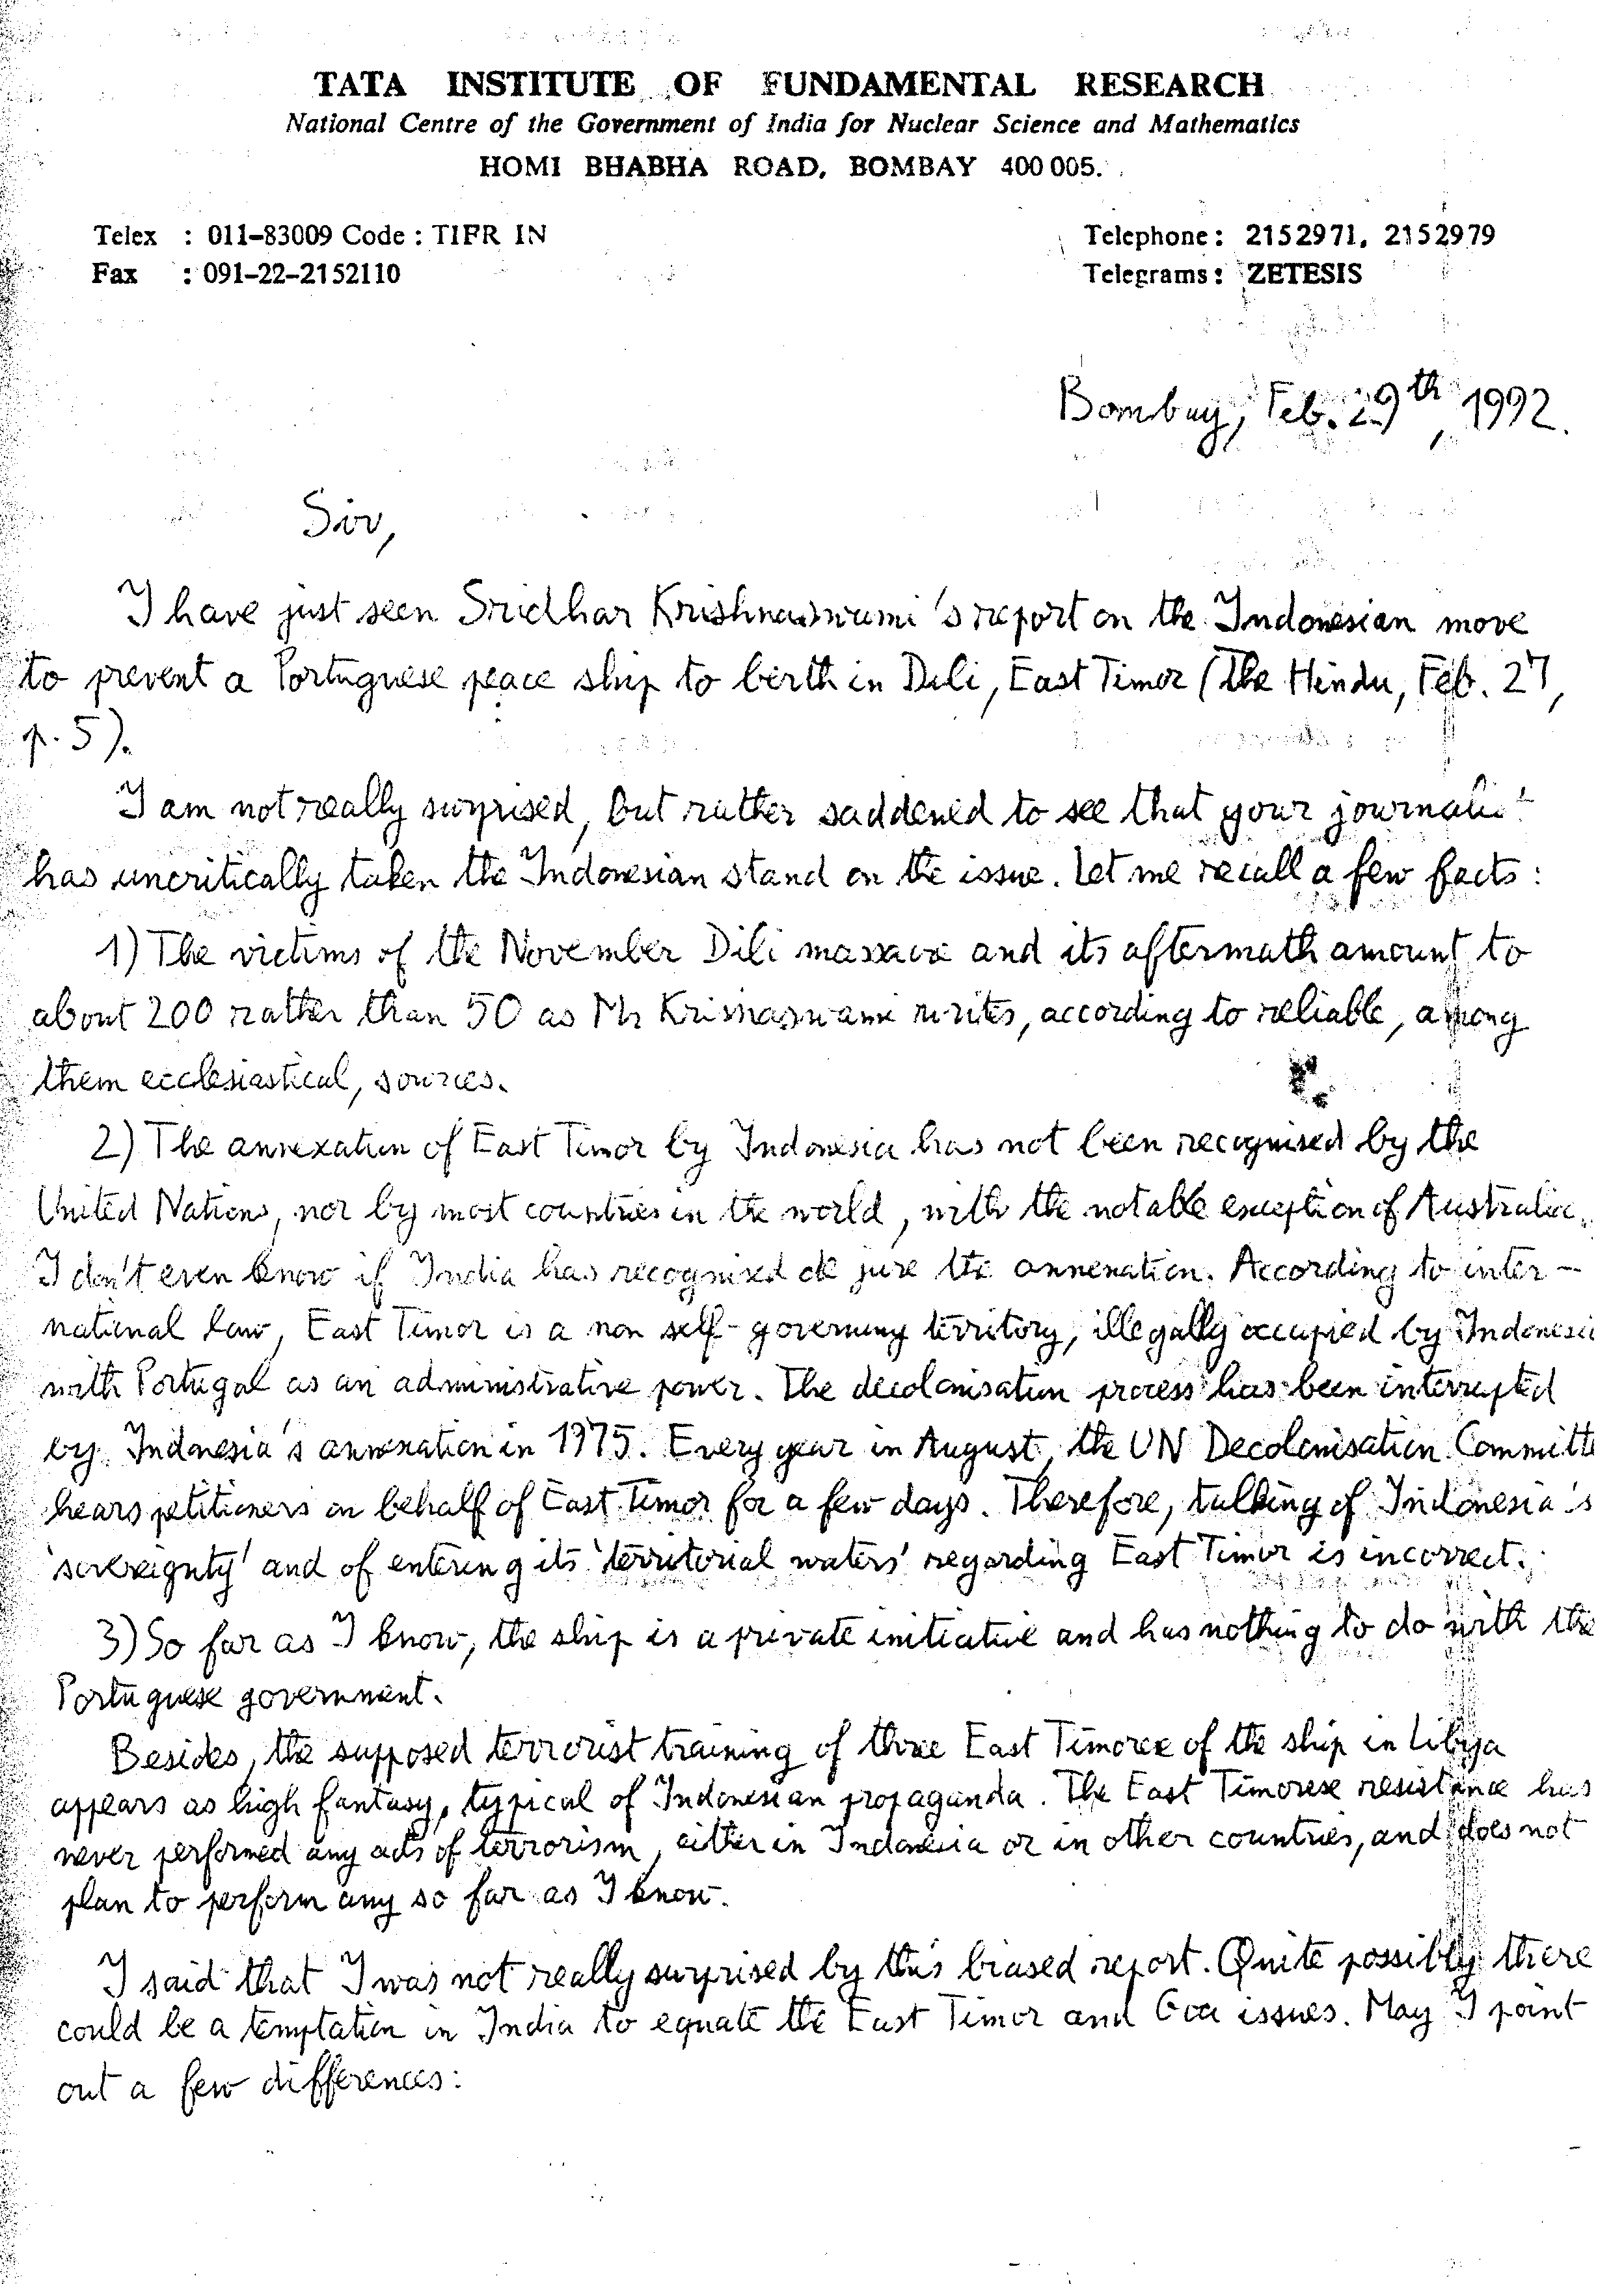 TATA INSTITUTE OF FUNDAMENTAL RESEARCH
National Centre of the Government of India for Nuclear Science and Mathematics
HOMI BHABHA ROAD, BOMBAY 400 005.
Telex : 011-83009 Code : TIFR IN
Telephone : 2152971, 2152979
Fax : 091-22-2152110
Telegrams : ZETESIS
Bombay, Feb. 29th, 1992.
Sir,
I have just seen Sridhar Krishnaswami's report on the Indonesian move
to prevent a Portuguese peace ship to birth in Dili, East Timor (The Hindu, Feb. 27,
p. 5).
I am not really surprised, but rather saddened to see that your journalist
has uncritically taken the Indonesian stand on the issue. Let me recall a few facts :
1) The victims of the November Dili massacre and its aftermath amount to
about 200 rather than 50 as Mr Krisnaswami writes, according to reliable, among
them ecclesiastical, sources.
2) The annexation of East Timor by Indonesia has not been recognised by the
United Nations, nor by most countries in the world, with the notable exception of Australia.
I don't even know if India has recognised de jure the annexation. According to inter-
national law, East Timor is a non self-governing territory, illegally occupied by Indonesia
with Portugal as an administrative power. The decolonisation process has been interrupted
by Indonesia's annexation in 1975. Every year in August, the UN Decolonisation Committe
hears petitioners on behalf of East Timor for a few days. Therefore, talking of Indonesia's
'sovereignty' and of entering its 'territorial waters' regarding East Timor is incorrect.
3) So far as I know, the ship is a private initiative and has nothing to do with the
Portuguese government.
Besides, the supposed terrorist training of three East Timorese of the ship in Libya
appears as high fantasy, typical of Indonesian propaganda. The East Timorese resistance has
never performed any acts of terrorism, either in Indonesia or in other countries, and does not
plan to perform any so far as I know.
I said that I was not really surprised by this biased report. Quite possibly there
could be a temptation in India to equate the East Timor and Goa issues. May I point
out a few differences :